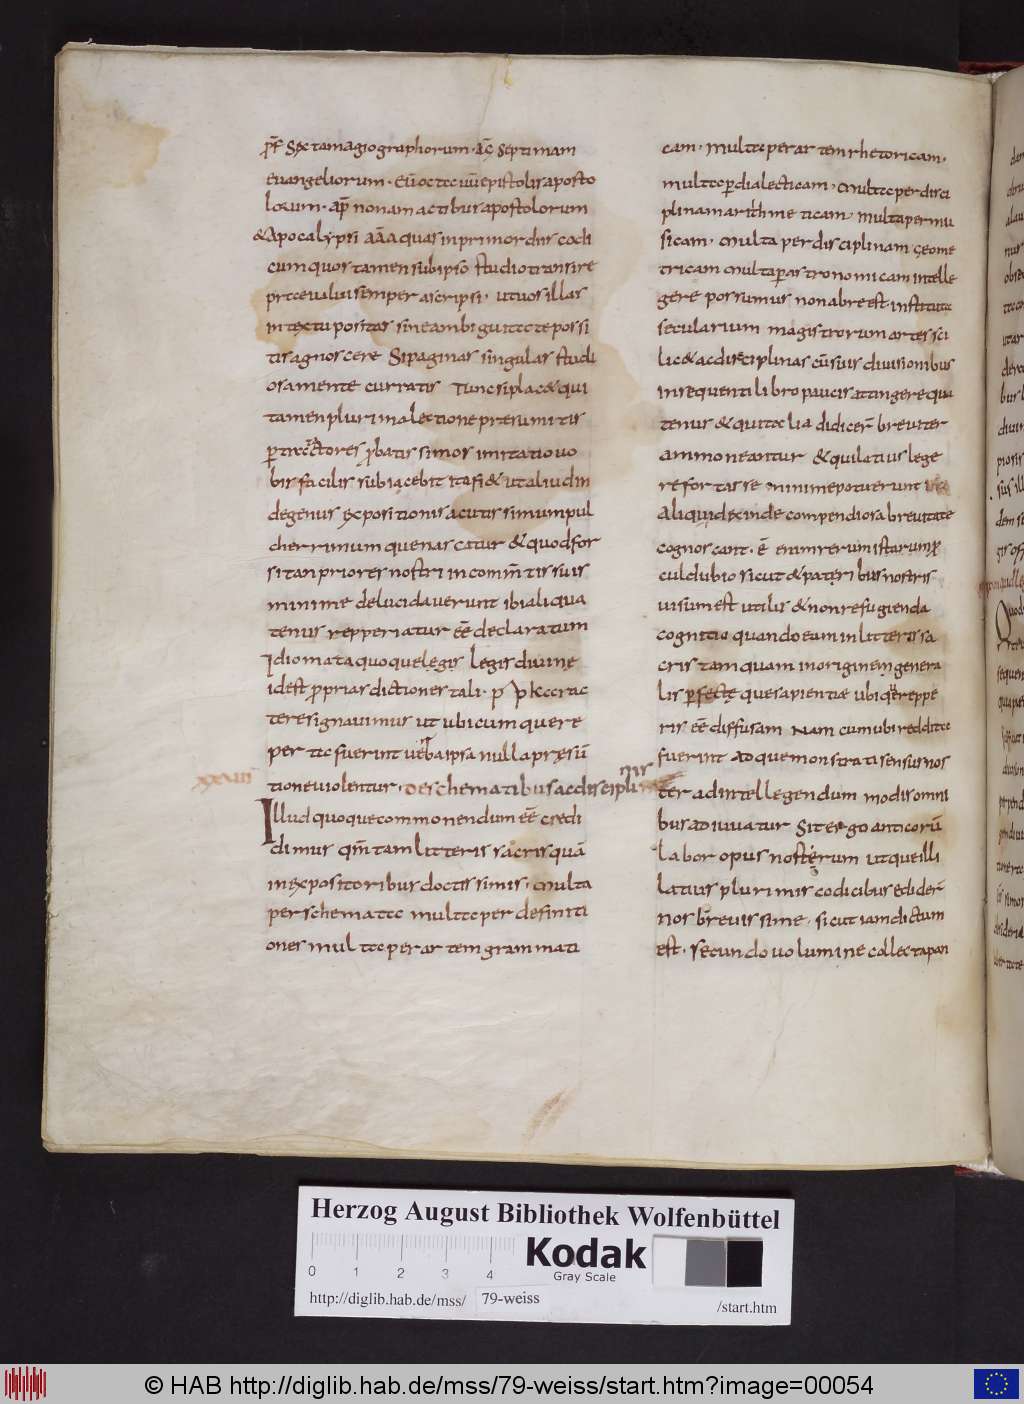 p̄f Sextam agiographorum · ac̄ septimam
euangeliorum · eū octauā epistolis aposto
lorum · ap̄ nonam actibus apostolorum
& Apocalypsi āāā quas in primordiis codi
cum quos tamen sub ipso studio transire
praeualui semper ascripsi · ut uos illas
in textu positas sine ambiguitate possi
tis agnoscere Si paginas singulas studi
osa mente curratis Tunc si plac& qui
tamen plurima lectione presumitis
p tractatores pbatissimos imitatio uo
bis facilis subiacebit ita fi& ut aliud in
de genus expositionis acutissimum pul
cherrimum que nascatur & quod for
sitan priores nostri in comm̄tis suis
minime delucidauerunt ibi aliqua
tenus repperiatur eē declaratum
Idiomata quoque legis legis diuine
id est pprias dictiones tali · p p k carac
tere signauimus ut ubicumque re
per tae fuerint uerba ipsa nulla presū
xxvii
tione uiolentur · De schematibus ac disciplinis
Illud quoque commonendum eē credi
dimus qm̄ tam litteris sacris quā
in expositoribus doctissimis · multa
per schemata multa per definiti
ones multa per artem grammati
cam · Multa per artem rhetoricam ·
multa p dialecticam · Multa per disci
plinam arithmeticam · Multa per mu
sicam · Multa per disciplinam geome
tricam Multa p astronomicam intelle
gere possumus non abre est instituta
secularium magistrorum artes sci
lic& ac disciplinas cū suis diuisionibus
in sequenti libro paucis attingere qua
tenus & qui talia didicer̄ breuiter
ammoneantur & qui latius lege
re fortasse minime potuerunt
aliquid exinde compendiosa breuitate
cognoscant · ē enim rerum istarum p
cul dubio sicut & patribus nostris
uisum est utilis & non refugienda
cognitio quando eum in litteris sa
cris tamquam in origine generа
lis pfecte que sapientiae ubique reppe
ris eē diffusam Nam cum ubi redditae
fuerint adque monstrati sensus nos
ter ad intellegendum modis omni
bus adiuuatur Sit ergo anticorū
labor opus nostrum ut que illi
latius plurimis codicibus edider̄
nos breuissime · sicut iam dictum
est · secundo uolumine collecta pan
Herzog August Bibliothek Wolfenbüttel
0 1 2 3 4
Kodak
Gray Scale
http://diglib.hab.de/mss/ 79-weiss /start.htm
© HAB http://diglib.hab.de/mss/79-weiss/start.htm?image=00054